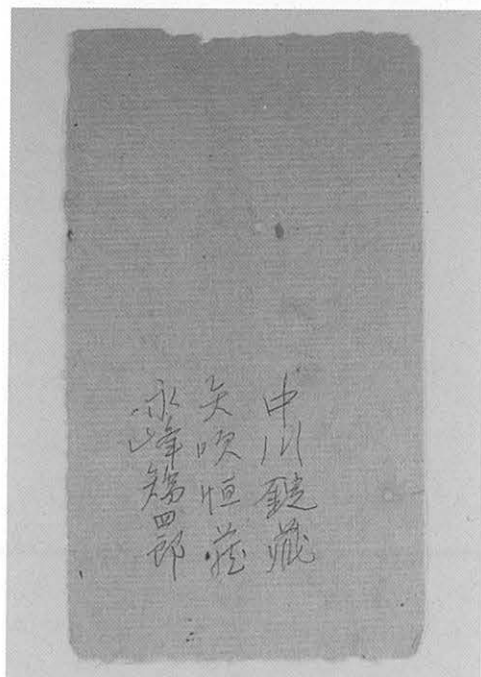 中川鏡蔵
矢吹恒蔵
永峰矯四郎